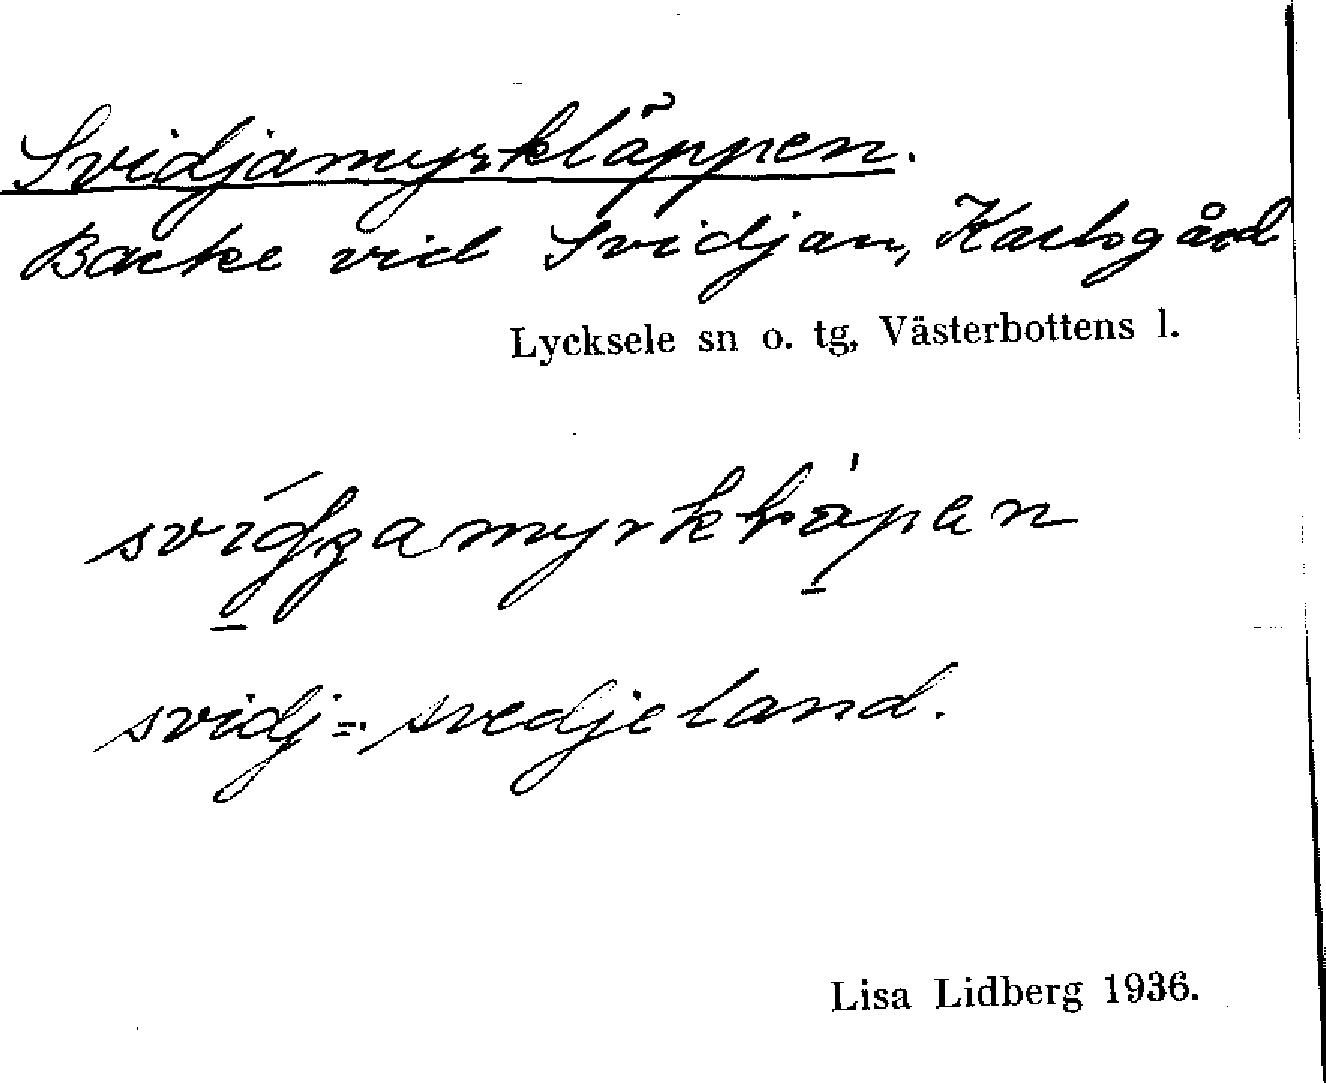 Svidjamyrkläppen.
Backe vid Svidjan, Karlsgård
Lycksele sn o. tg, Västerbottens l.
svidj-: svedjeland.
Lisa Lidberg 1936.